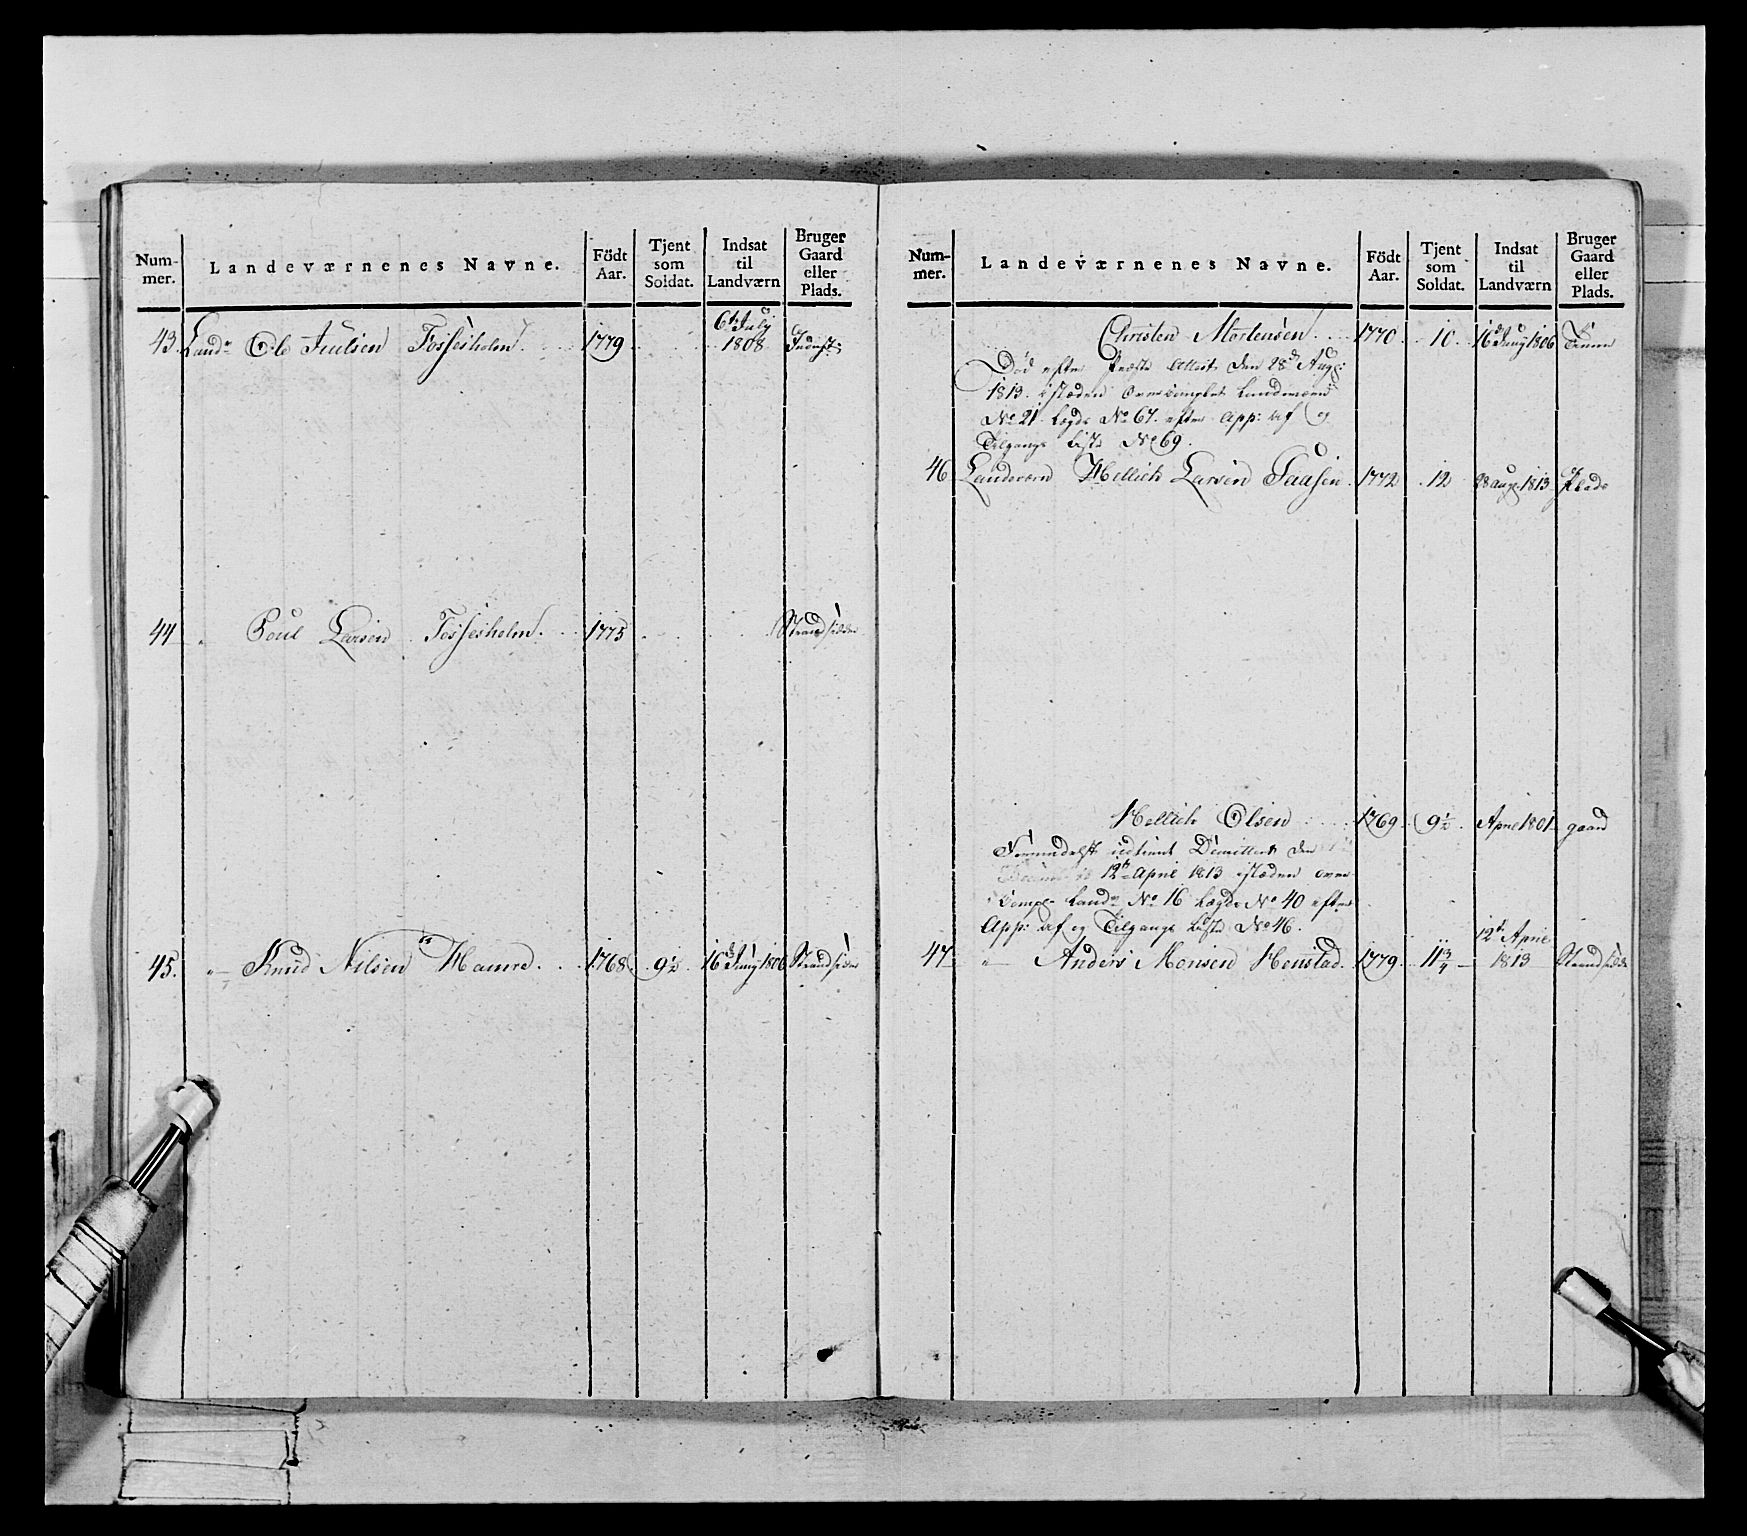 Num-
mer.
Landeværnenes Navne.
Födt
Aar.
Tjent
som
Soldat.
Indsat
til
Landværn
Bruger
Gaard
eller
Plads.
43. Landv Ole Juelsen Fossesholm. 1779 6te July 1808 Inderst
44 " Poul Larsen Fossesholm. 1775 Strandsider
45. " Knud Nilsen Hamre. 1768 9½ 16d Juny 1806 Strandsider
Num-
mer.
Landeværnenes Navne.
Födt
Aar.
Tjent
som
Soldat.
Indsat
til
Landværn
Bruger
Gaard
eller
Plads.
Christen Mortensen 1770 10 16d Juny 1806
Död efter Præste Attest den 28de Aug:
1813. istæden Overcomplet Landværn
No 21 Lægds No 67. efter App: Af og
Tilgangs Liste No 69.
46 Landeværn Hellich Larsen Paasen 1772 12 28 Aug 1813 Plads
Hellich Olsen 1769 9½ April 1801 gaard
udtient Dimittert den
12te April 1813 istæden over
Comp: Landv No 16 Lægds No 40 efter
App: Af og Tilgangs Liste No 46.
47 " Anders Monsen Hemstad 1779 11¾ 12te April 1813 Strandsider